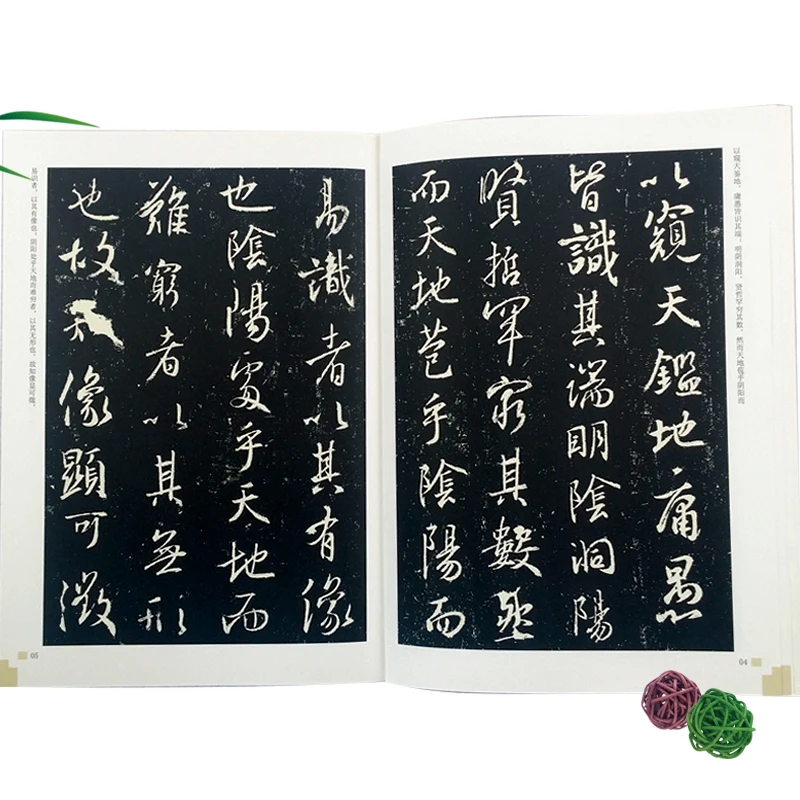 以窥天鉴地，庸愚皆识其端；明阴洞阳，贤哲罕穷其数。然而天地苞乎阴阳而
以窺天鑑地庸愚
皆識其端明陰洞陽
賢哲罕窮其數然
而天地苞乎陰陽而
04
易識者以其有像
也陰陽處乎天地而
難窮者以其無形
也故知像顯可徵
易识者，以其有像也；阴阳处乎天地而难穷者，以其无形也。故知像显可徵，
05